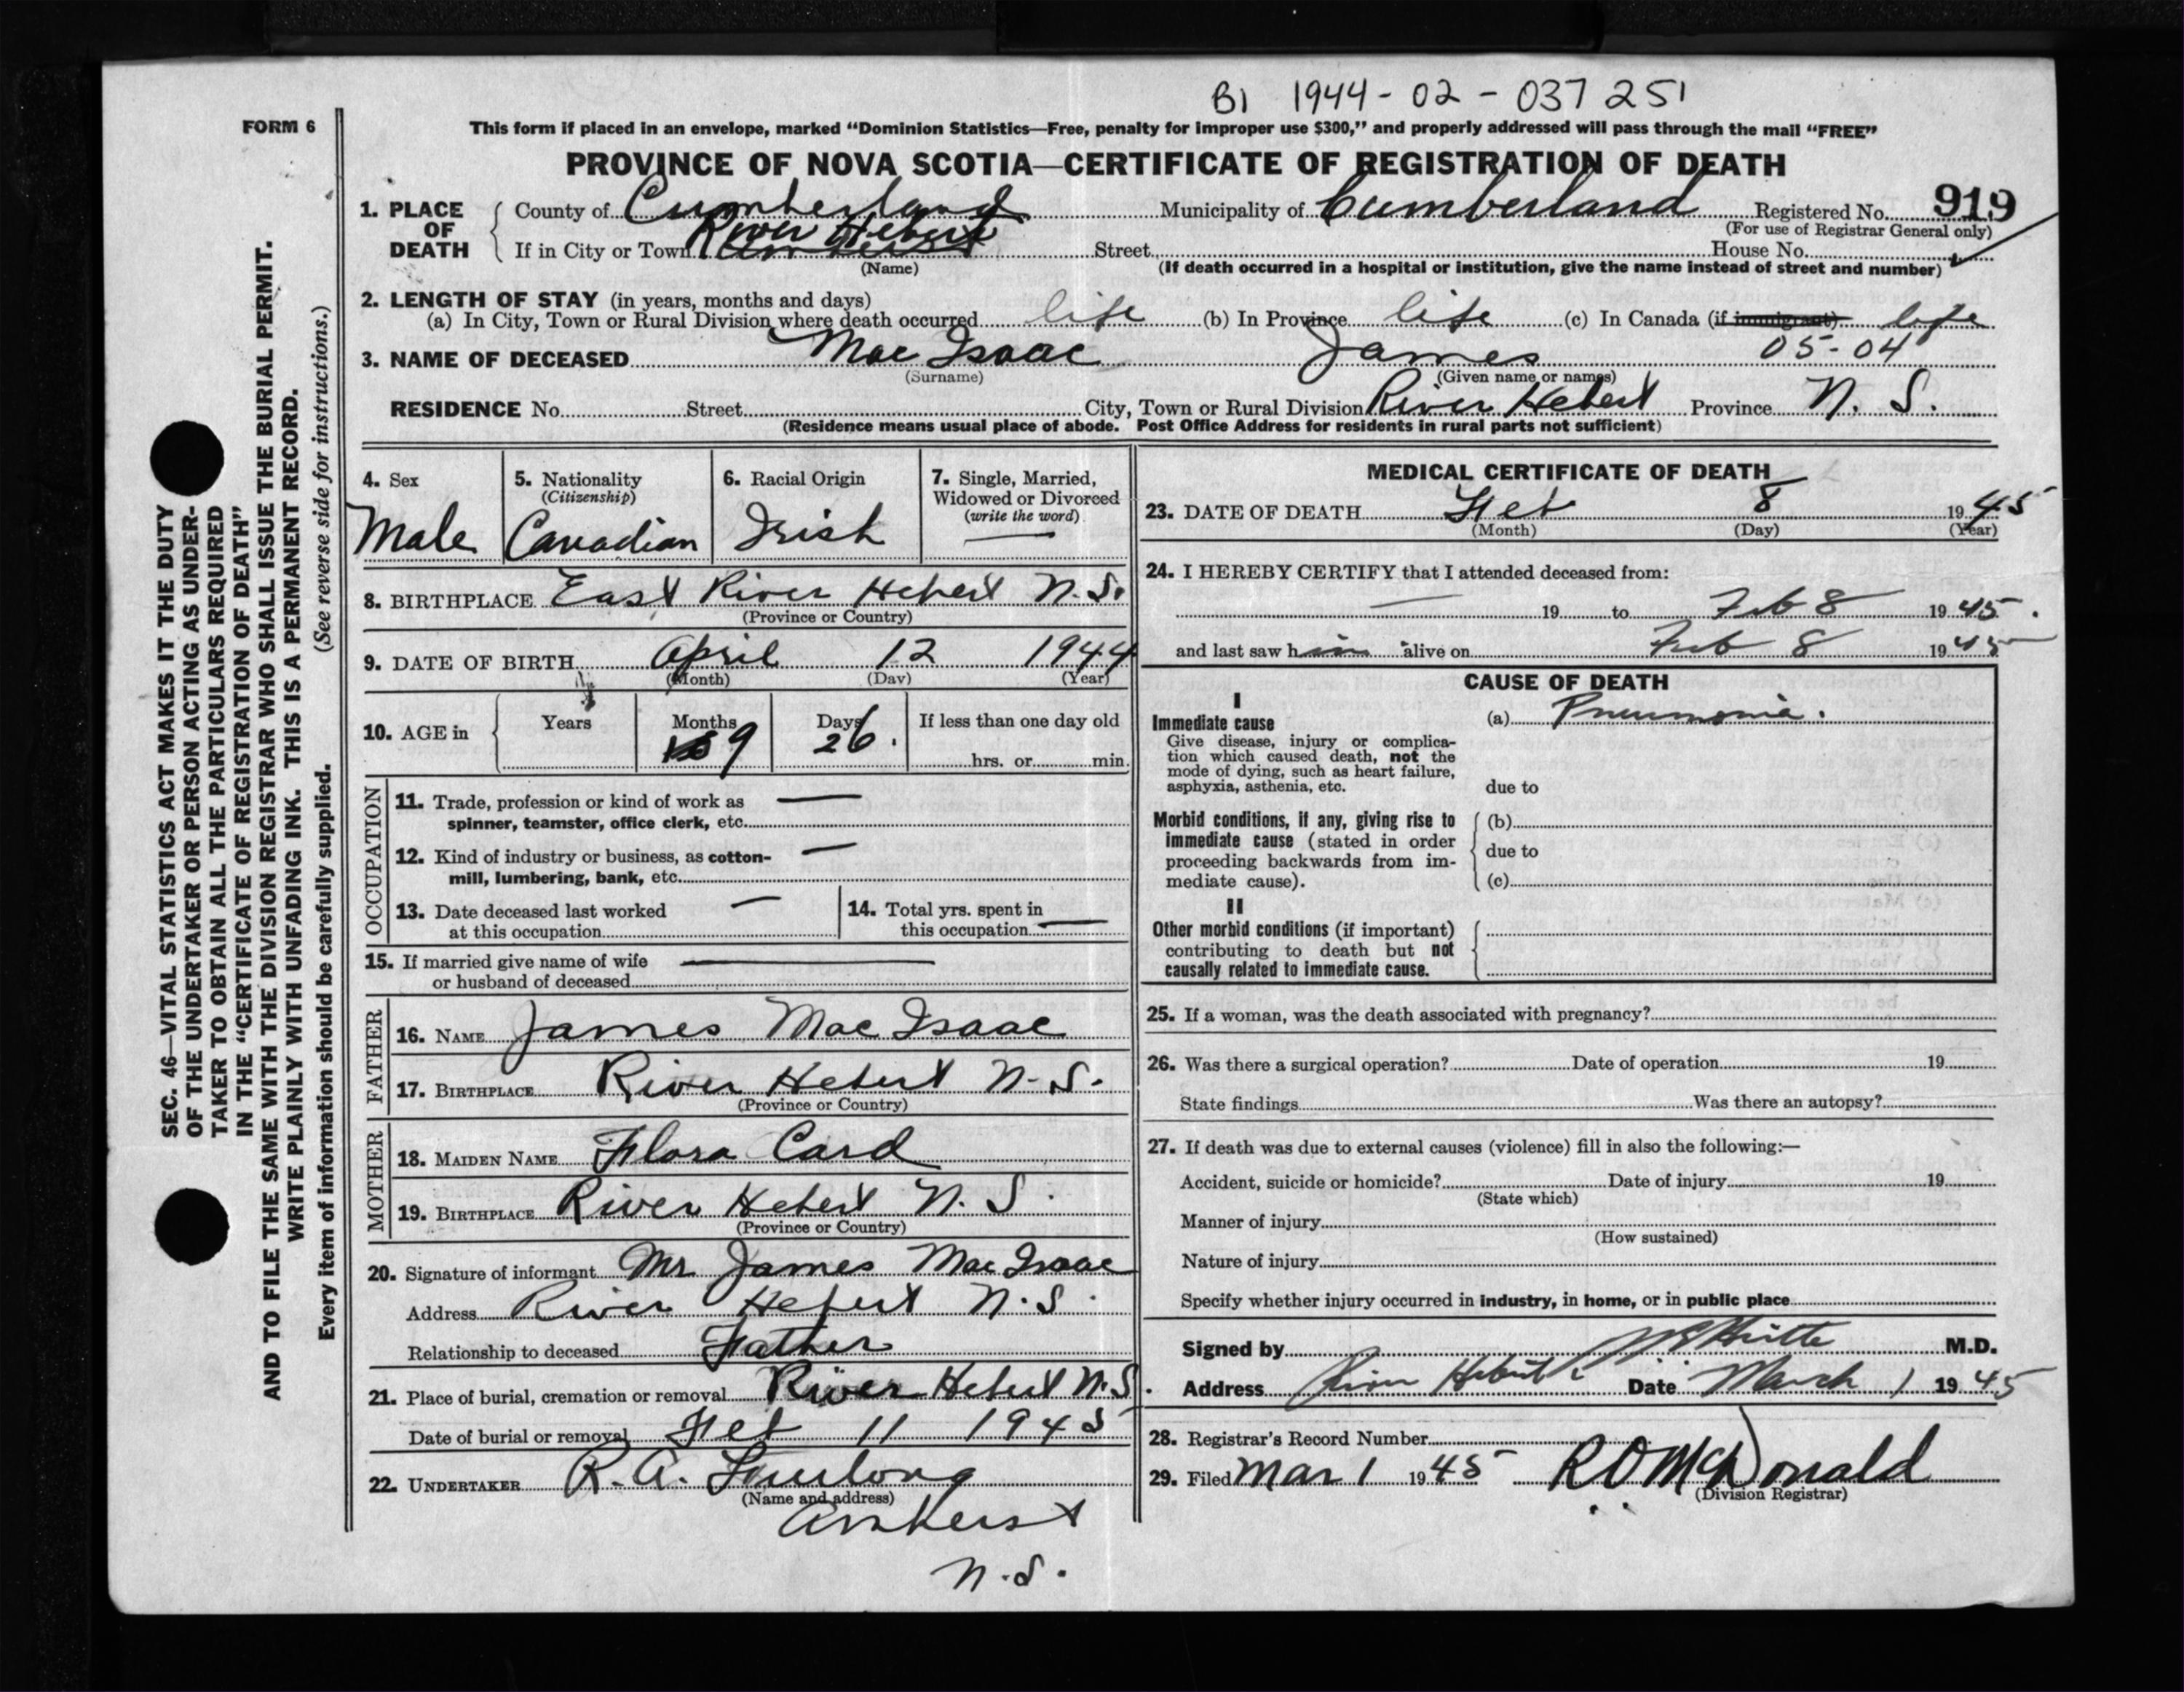 B1 1944-02-037251
FORM 6
This form if placed in an envelope, marked "Dominion Statistics—Free, penalty for improper use $300," and properly addressed will pass through the mail "FREE"
PROVINCE OF NOVA SCOTIA—CERTIFICATE OF REGISTRATION OF DEATH
1. PLACE OF DEATH
County of Cumberland Municipality of Cumberland Registered No. 919
(For use of Registrar General only)
If in City or Town River Hebert Street House No.
(Name) (If death occurred in a hospital or institution, give the name instead of street and number)
2. LENGTH OF STAY (in years, months and days)
(a) In City, Town or Rural Division where death occurred life (b) In Province life (c) In Canada (if immigrant) life
3. NAME OF DECEASED Mac Isaac James 05-04
(Surname) (Given name or names)
RESIDENCE No. Street City, Town or Rural Division River Hebert Province N. S.
(Residence means usual place of abode. Post Office Address for residents in rural parts not sufficient)
4. Sex
Male
5. Nationality
(Citizenship)
Canadian
6. Racial Origin
Irish
7. Single, Married,
Widowed or Divorced
(write the word)
—
8. BIRTHPLACE East River Hebert N.S.
(Province or Country)
9. DATE OF BIRTH April 12 1944
(Month) (Day) (Year)
10. AGE in Years Months 9 Days 26. If less than one day old
hrs. or min.
OCCUPATION
11. Trade, profession or kind of work as —
spinner, teamster, office clerk, etc.
12. Kind of industry or business, as cotton- —
mill, lumbering, bank, etc.
13. Date deceased last worked —
at this occupation
14. Total yrs. spent in
this occupation —
15. If married give name of wife —
or husband of deceased
FATHER
16. NAME James Mac Isaac
17. BIRTHPLACE River Hebert N.S.
(Province or Country)
MOTHER
18. MAIDEN NAME Flora Card
19. BIRTHPLACE River Hebert N.S.
(Province or Country)
20. Signature of informant Mr James Mac Isaac
Address River Hebert N.S.
Relationship to deceased Father
21. Place of burial, cremation or removal River Hebert N.S.
Date of burial or removal Feb 11 1945
22. UNDERTAKER R.A. Furlong
(Name and address)
Amherst
N.S.
MEDICAL CERTIFICATE OF DEATH
23. DATE OF DEATH Feb 8 1945
(Month) (Day) (Year)
24. I HEREBY CERTIFY that I attended deceased from:
— 19 to Feb 8 1945.
and last saw him alive on Feb 8 1945
CAUSE OF DEATH
I
Immediate cause (a) Pneumonia.
Give disease, injury or complica-
tion which caused death, not the
mode of dying, such as heart failure,
asphyxia, asthenia, etc. due to
Morbid conditions, if any, giving rise to (b)
immediate cause (stated in order
proceeding backwards from im- due to
mediate cause). (c)
II
Other morbid conditions (if important)
contributing to death but not
causally related to immediate cause.
25. If a woman, was the death associated with pregnancy?
26. Was there a surgical operation? Date of operation 19
State findings Was there an autopsy?
27. If death was due to external causes (violence) fill in also the following:—
Accident, suicide or homicide? Date of injury 19
(State which)
Manner of injury
(How sustained)
Nature of injury
Specify whether injury occurred in industry, in home, or in public place
Signed by M.D.
Address River Hebert Date March 1 1945
28. Registrar's Record Number
29. Filed Mar 1 1945 R O McDonald
(Division Registrar)
SEC. 46—VITAL STATISTICS ACT MAKES IT THE DUTY
OF THE UNDERTAKER OR PERSON ACTING AS UNDER-
TAKER TO OBTAIN ALL THE PARTICULARS REQUIRED
IN THE "CERTIFICATE OF REGISTRATION OF DEATH"
AND TO FILE THE SAME WITH THE DIVISION REGISTRAR WHO SHALL ISSUE THE BURIAL PERMIT.
WRITE PLAINLY WITH UNFADING INK. THIS IS A PERMANENT RECORD.
Every item of information should be carefully supplied. (See reverse side for instructions.)